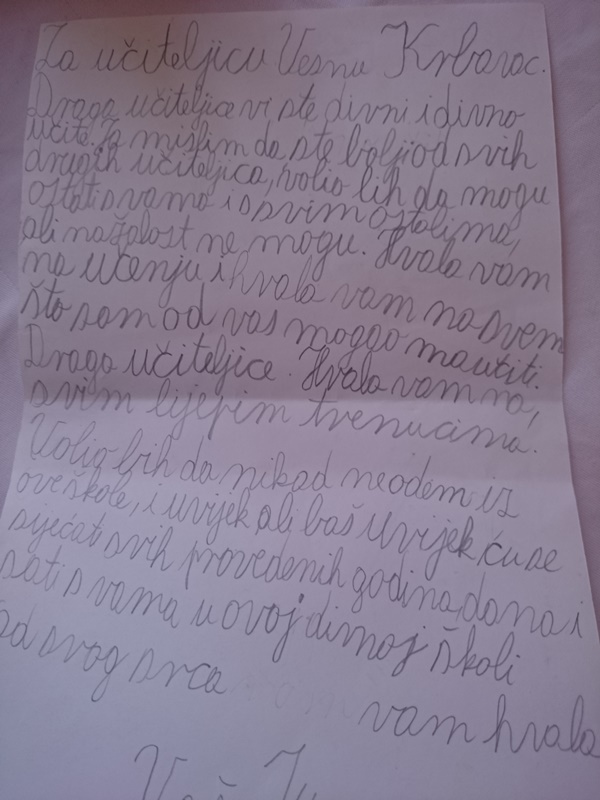 Za učiteljicu Vesnu Krbavac.
Draga učiteljice vi ste divni i divno
učite. Ja mislim da ste bolji od svih
drugih učiteljica, volio bih da mogu
ostati s vama i s svim ostalima,
ali nažalost ne mogu. Hvala vam
na učenju i hvala vam na svem
što sam od vas moggo maučiti.
Draga učiteljice. Hvala vam na,
svim lijepim trenucima.
Volio bih da nikad neodem iz
ove škole, i uvijek ali baš uvijek ću se
sjećati svih provedenih godina, dana i
sati s vama u ovoj divnoj školi
od svog srca vam hvala
Vaš